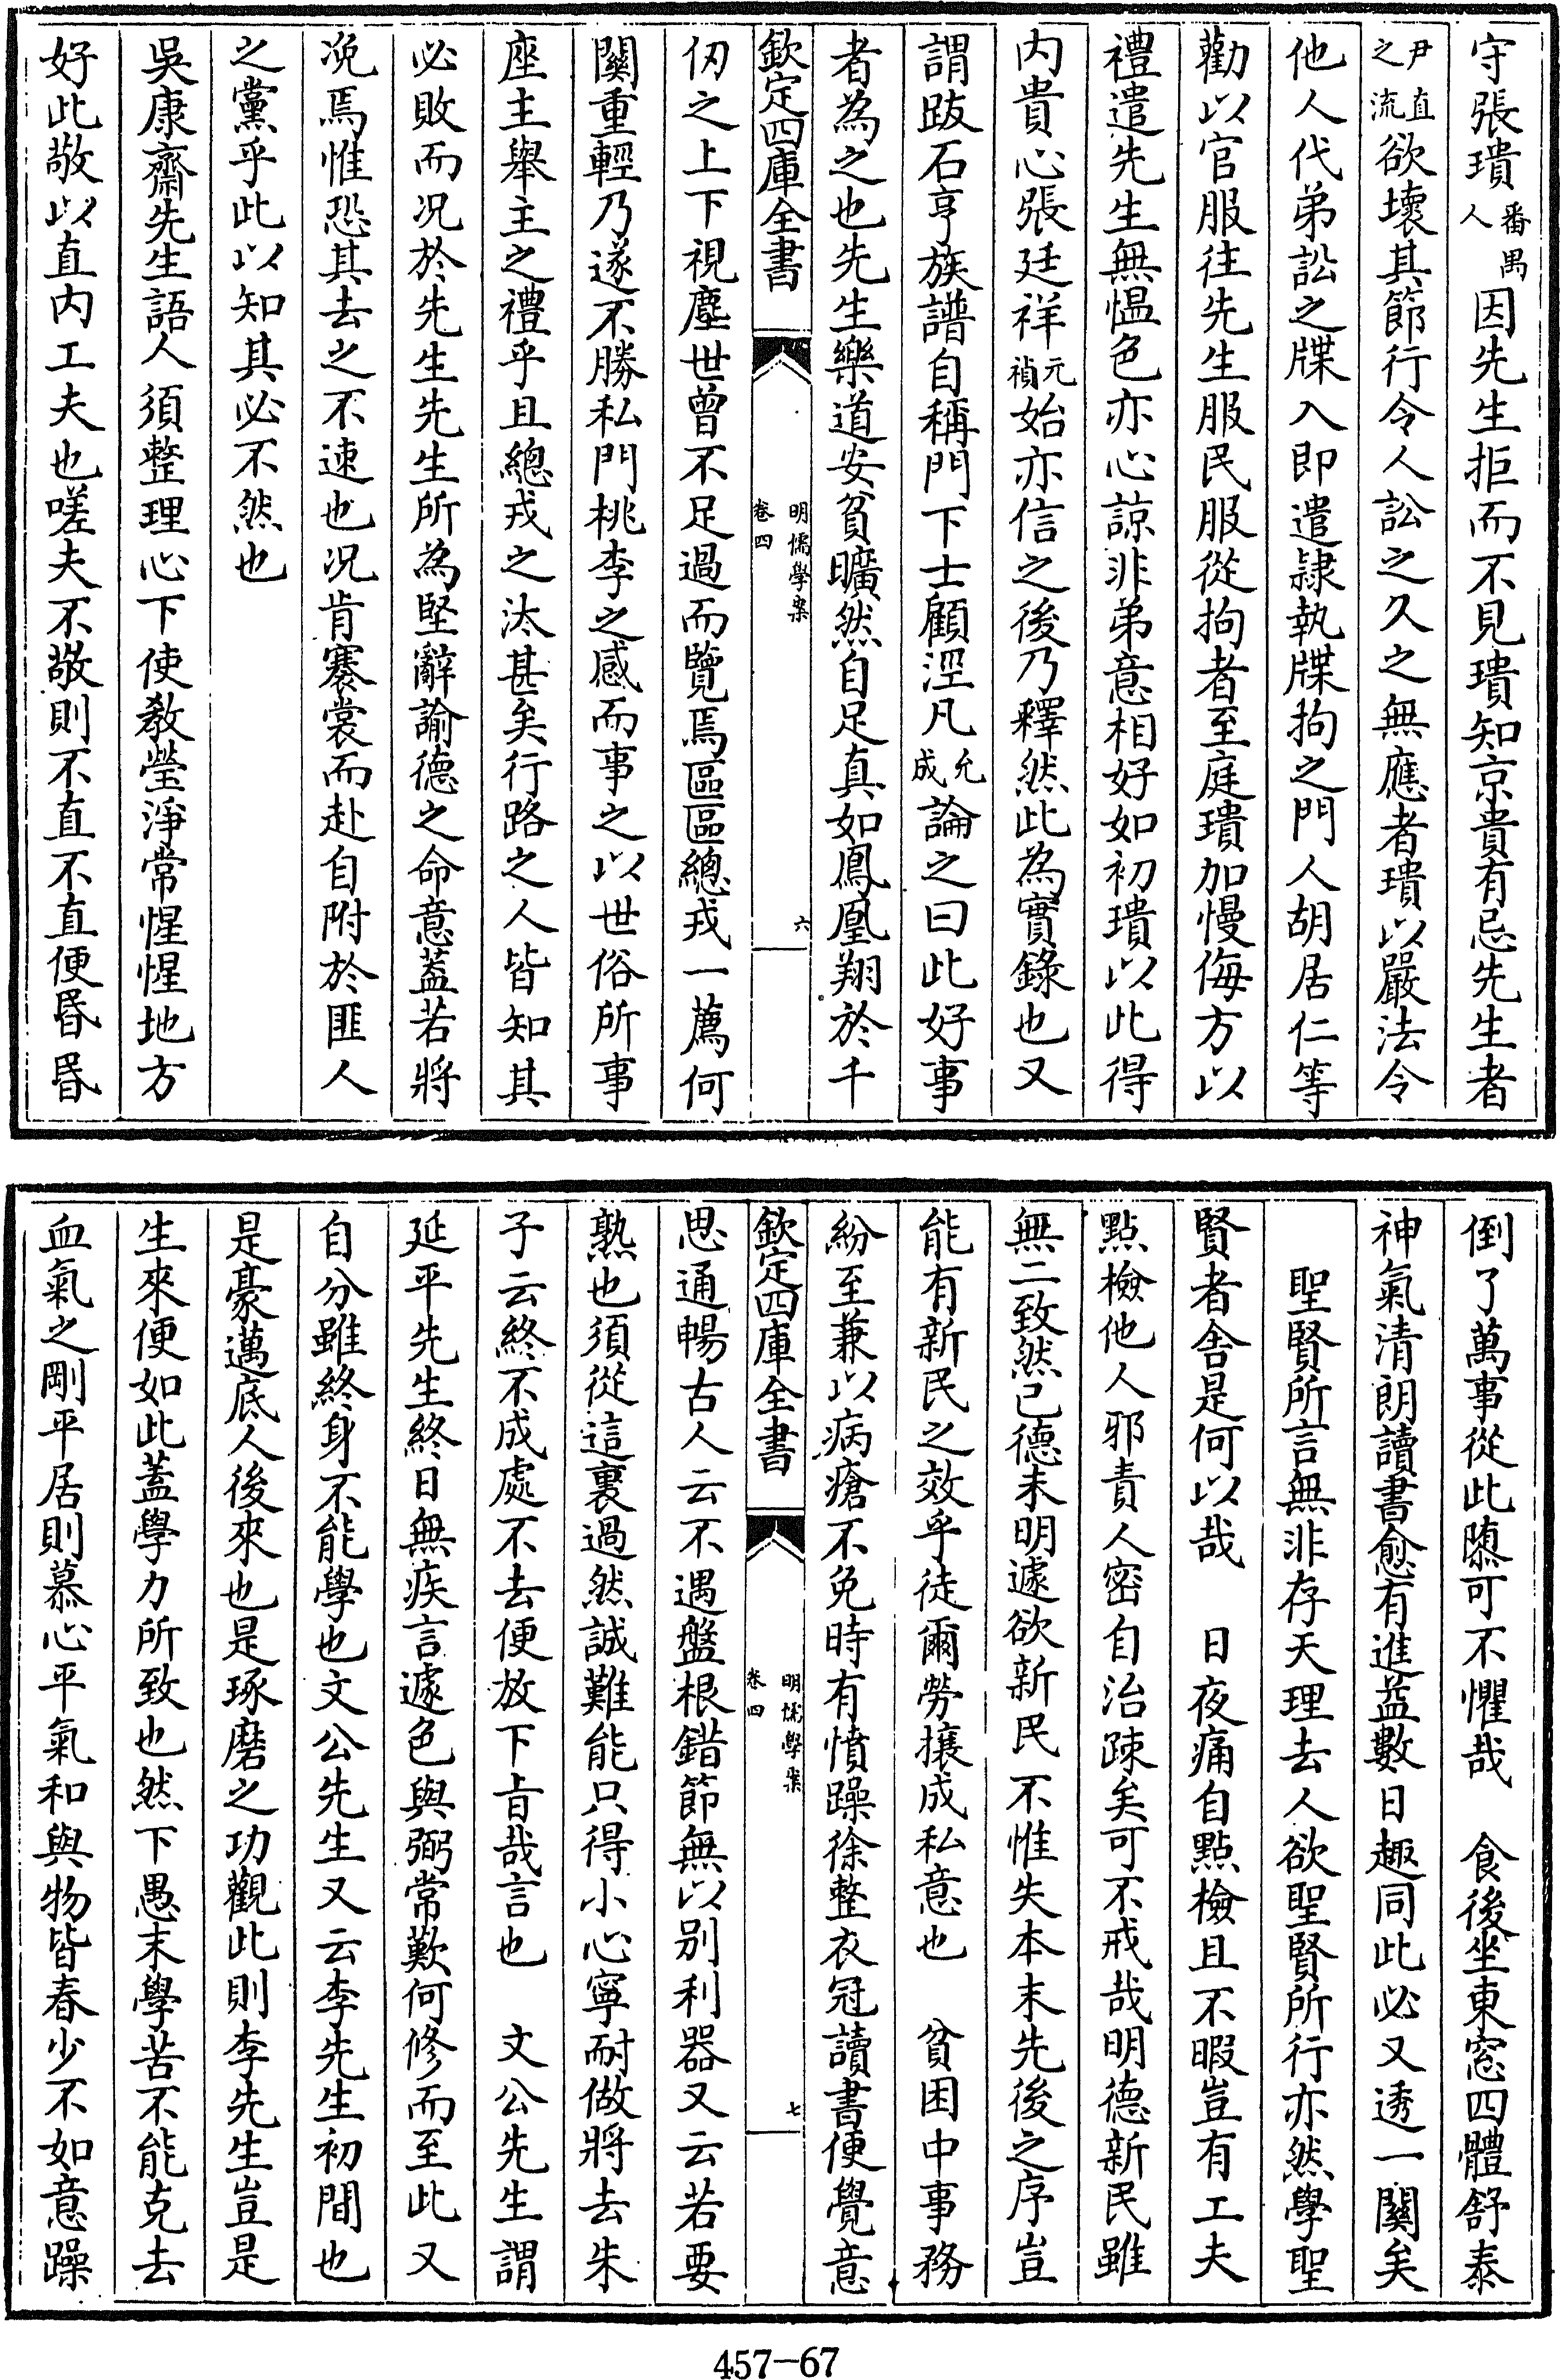 守張璝番禺人因先生拒而不見璝知京貴有忌先生者
尹直之流欲壞其節行令人訟之久之無應者璝以嚴法令
他人代弟訟之牒入即遣隷執牒拘之門人胡居仁等
勸以官服往先生服民服從拘者至庭璝加慢侮方以
禮遣先生無愠色亦心諒非弟意相好如初璝以此得
内貴心張廷祥元禎始亦信之後乃釋然此為實錄也又
謂跋石亨族譜自稱門下士顧涇凡允成論之曰此好事
者為之也先生樂道安貧曠然自足真如鳳凰翔於千
欽定四庫全書
明儒學案
卷四
六
仞之上下視塵世曾不足過而覽焉區區總戎一薦何
關重輕乃遂不勝私門桃李之感而事之以世俗所事
座主舉主之禮乎且總戎之汰甚矣行路之人皆知其
必敗而况於先生先生所為堅辭諭德之命意蓋若將
凂焉惟恐其去之不速也况肯褰裳而赴自附於匪人
之黨乎此以知其必不然也
吳康齋先生語人須整理心下使教瑩淨常惺惺地方
好此敬以直内工夫也嗟夫不敬則不直不直便昬昬
倒了萬事從此隳可不懼哉　食後坐東窓四體舒泰
神氣清朗讀書愈有進益數日趣同此必又透一關矣
聖賢所言無非存天理去人欲聖賢所行亦然學聖
賢者舍是何以哉　日夜痛自點檢且不暇豈有工夫
點檢他人邪責人密自治疎矣可不戒哉明德新民雖
無二致然己德未明遽欲新民不惟失本末先後之序豈
能有新民之效乎徒爾勞攘成私意也　貧困中事務
紛至兼以病瘡不免時有憤躁徐整衣冠讀書便覺意
欽定四庫全書
明儒學案
卷四
七
思通暢古人云不遇盤根錯節無以别利器又云若要
熟也須從這裏過然誠難能只得小心寧耐做將去朱
子云終不成處不去便放下㫖哉言也　文公先生謂
延平先生終日無疾言遽色與弼常歎何修而至此又
自分雖終身不能學也文公先生又云李先生初間也
是豪邁底人後來也是琢磨之功觀此則李先生豈是
生來便如此蓋學力所致也然下愚末學苦不能克去
血氣之剛平居則慕心平氣和與物皆春少不如意躁
457-67